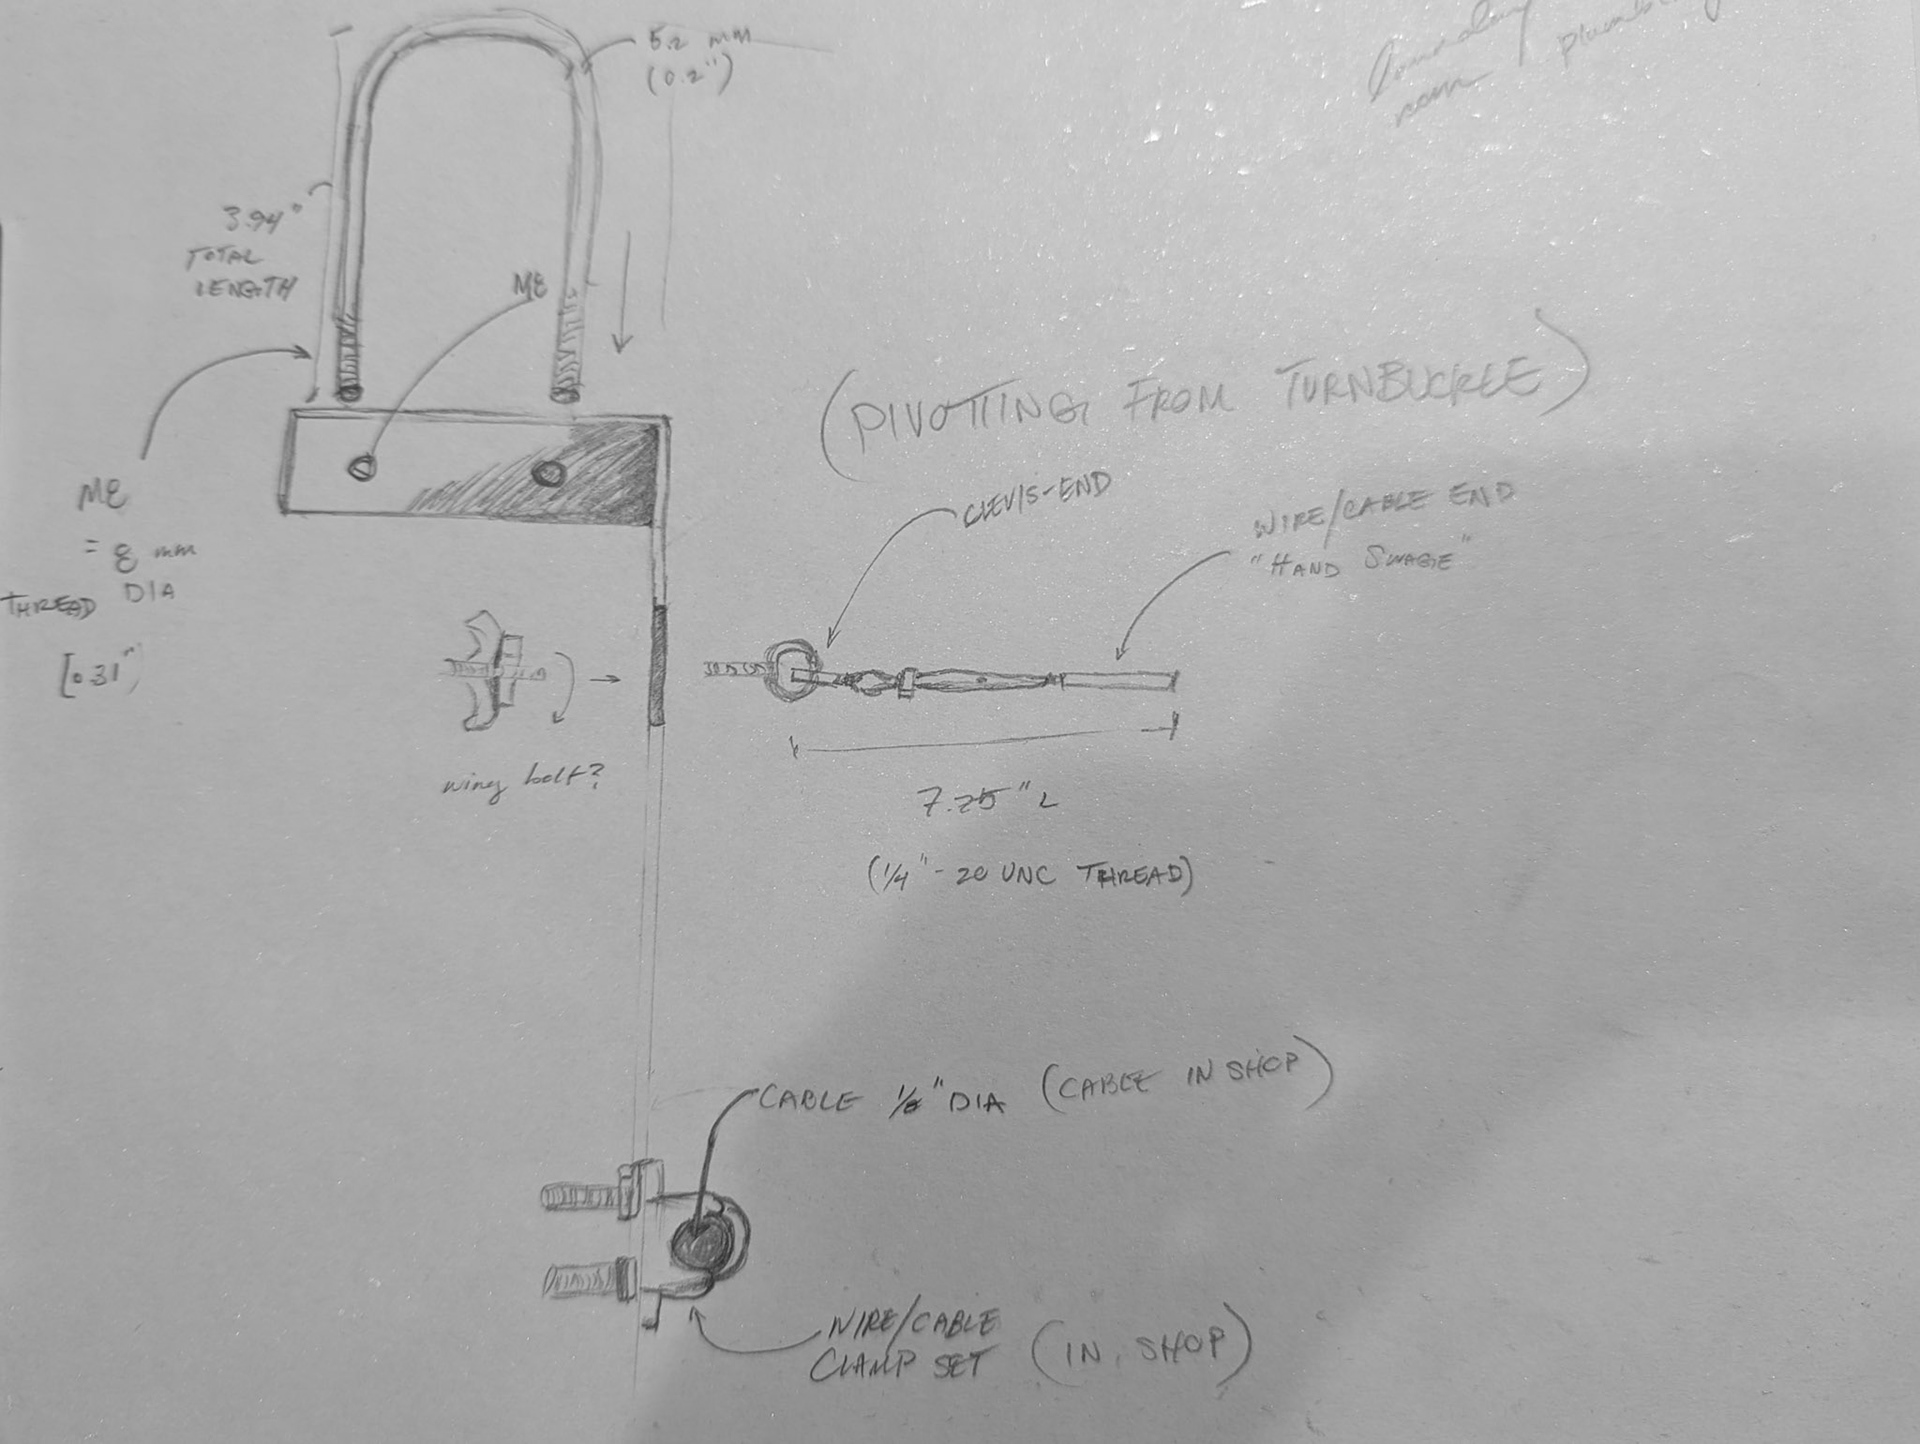 5.2 mm
(0.2")
3.94"
TOTAL
LENGTH
M8
M8
= 8 mm
THREAD DIA
[0.31"]
(PIVOTTING FROM TURNBUCKLE)
CLEVIS-END
WIRE/CABLE END
"HAND SWAGE"
wing bolt?
7.25" L
(1/4"-20 UNC THREAD)
CABLE 1/8" DIA (CABLE IN SHOP)
WIRE/CABLE
CLAMP SET (IN SHOP)